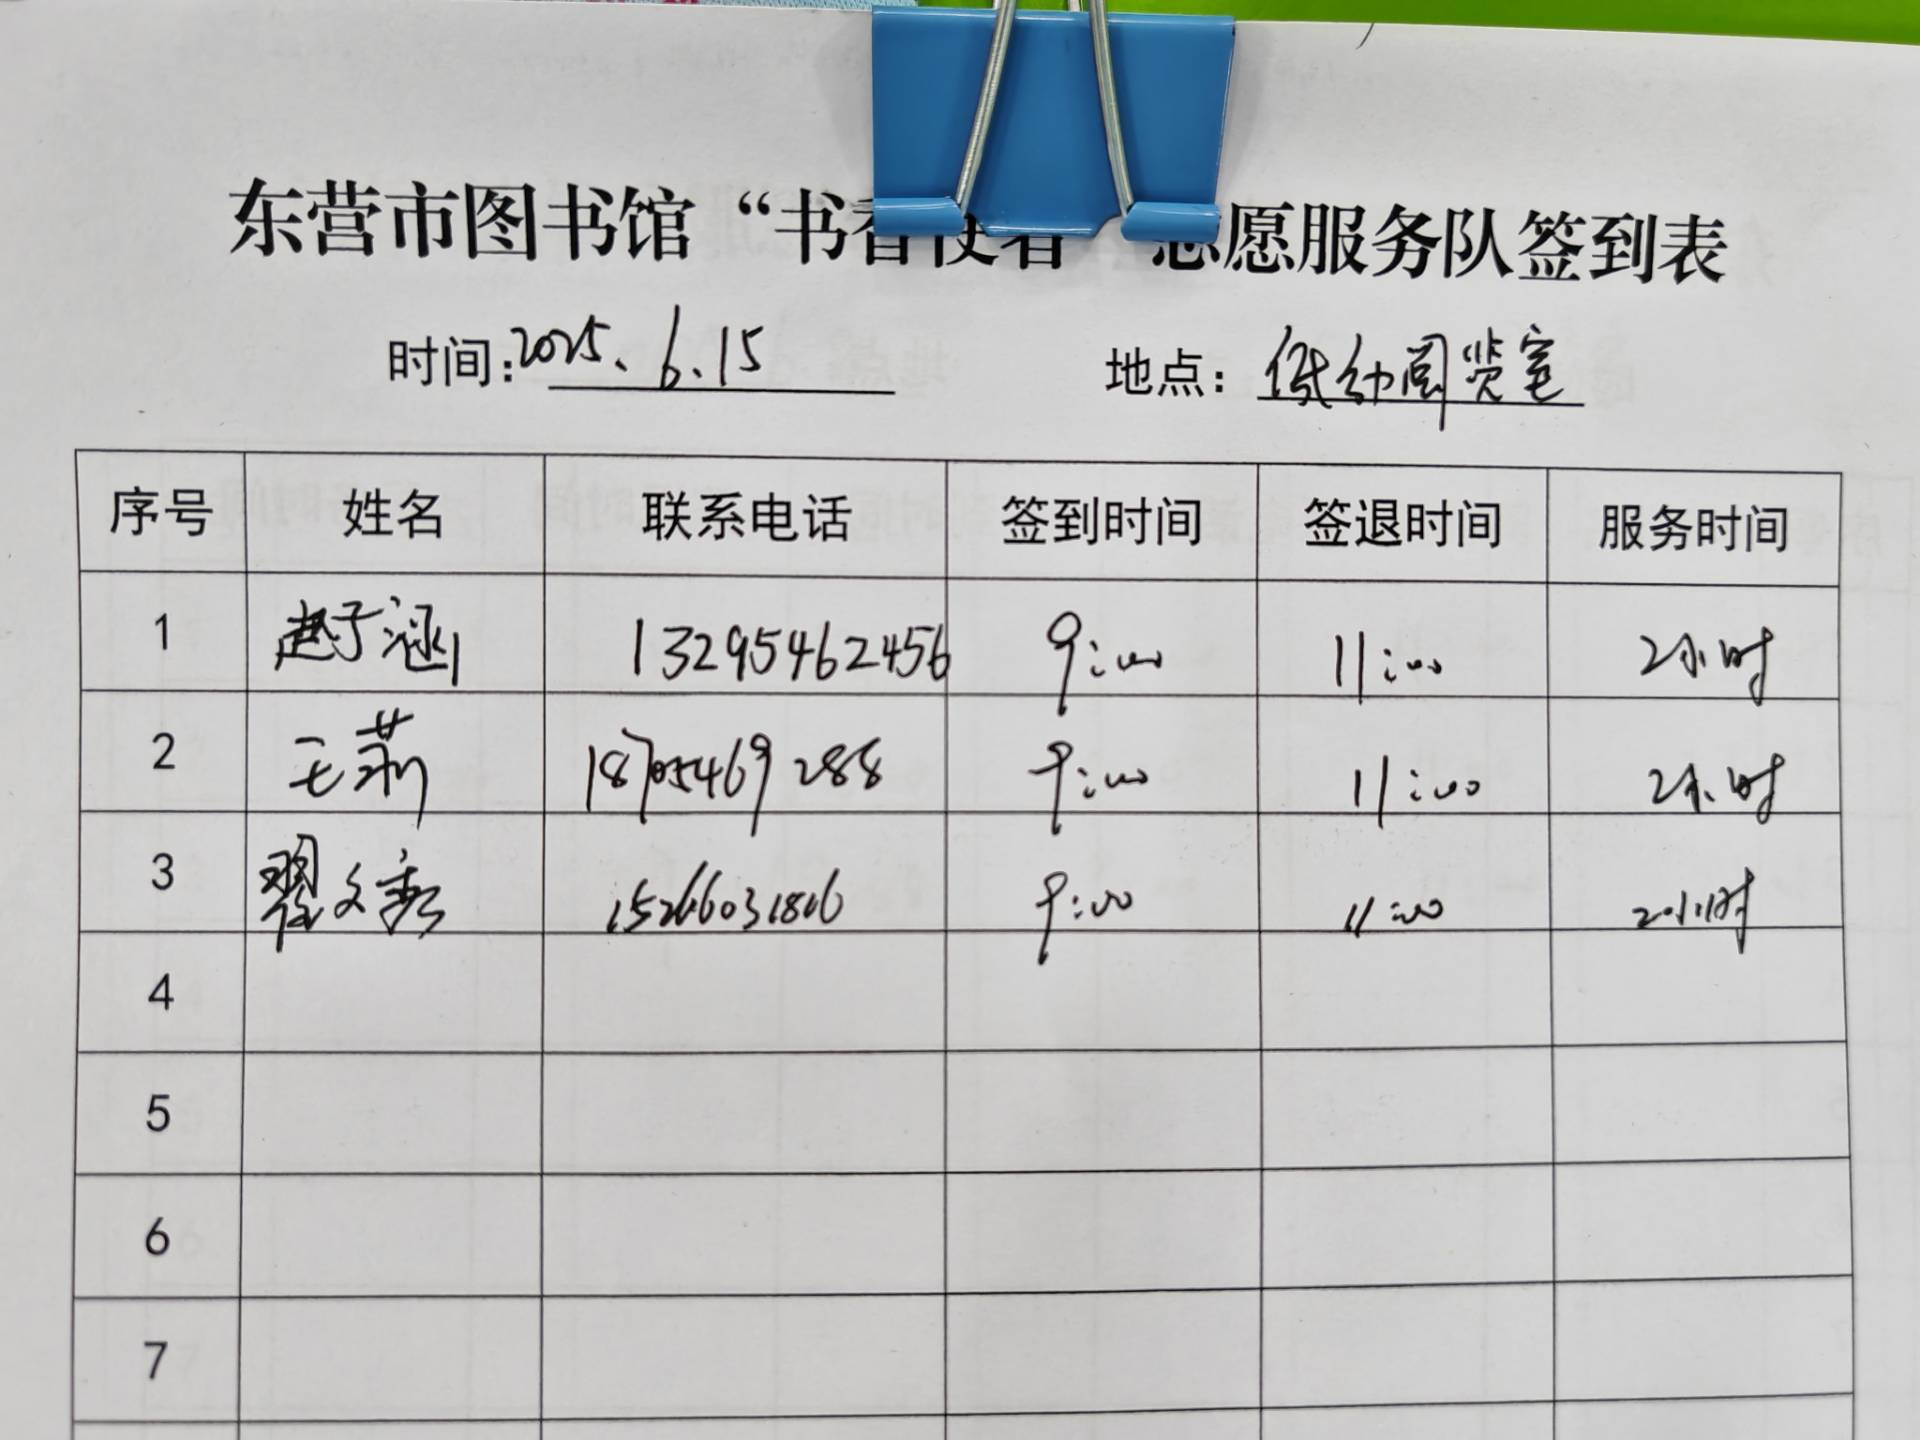 东营市图书馆“书香使者”志愿服务队签到表
时间：2025.6.15 地点：低幼阅览室
序号 姓名 联系电话 签到时间 签退时间 服务时间
1 赵子涵 13295462456 9:00 11:00 2小时
2 王莉 18705469288 9:00 11:00 2小时
3 翟文秀 15266031806 9:00 11:00 2小时
4
5
6
7